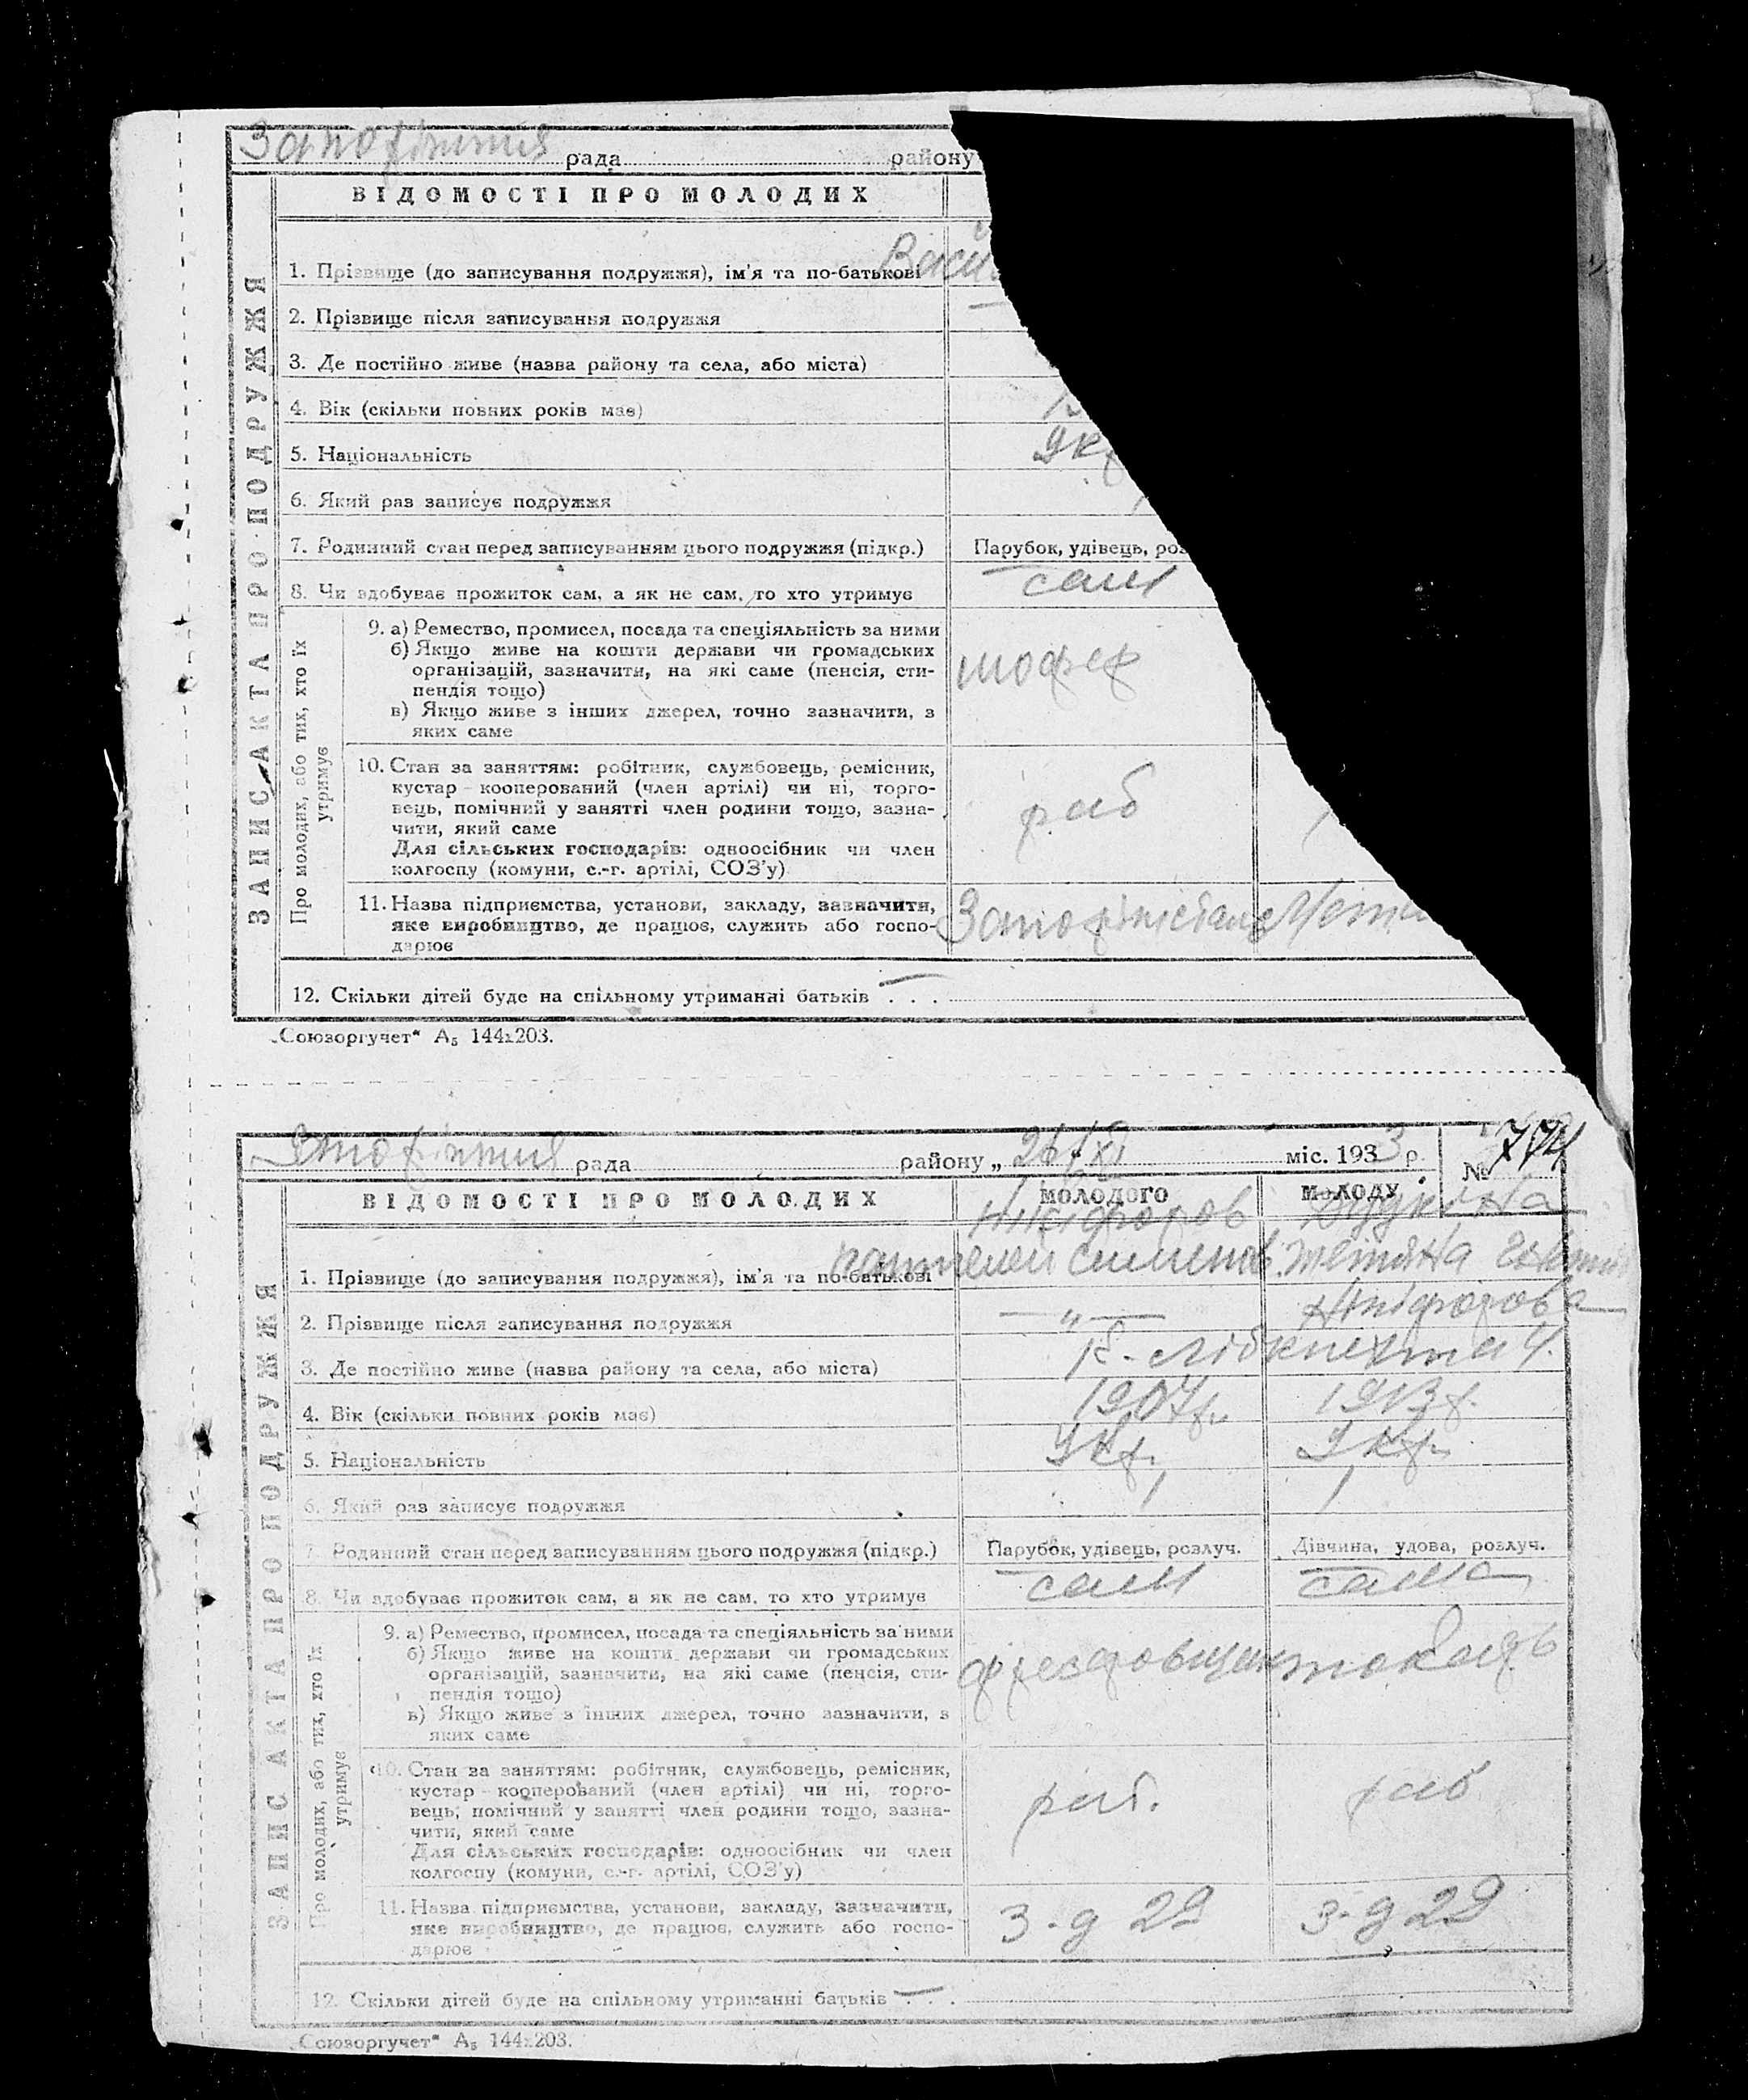 рада района району
ВІДОМОСТІ ПРО МОЛОДИХ
1. Прізвище (до записування подружжя), ім'я та по-батькові
2. Прізвище після записування подружжя
3. Де постійно живе (назва району та села, або міста)
4. Вік (скільки повних років має)
5. Національність Укр
6. Який раз записує подружжя
7. Родинний стан перед записуванням цього подружжя (підкр.) Парубок, удівець, роз
8. Чи здобуває прожиток сам, а як не сам, то хто утримує сам
ЗАПИС АКТА ПРО ПОДРУЖЖЯ
Про молодих, або тих, хто їх утримує
9. а) Ремество, промисел, посада та спеціяльність за ними
б) Якщо живе на кошти держави чи громадських
організацій, зазначити, на які саме (пенсія, сти-
пендія тощо)
в) Якщо живе з інших джерел, точно зазначити, з
яких саме
шофер
10. Стан за заняттям: робітник, службовець, ремісник,
кустар - кооперований (член артілі) чи ні, торго-
вець, помічний у занятті член родини тощо, зазна-
чити, який саме
Для сільських господарів: одноосібник чи член
колгоспу (комуни, с.-г. артілі, СОЗ'у)
раб
11. Назва підприємства, установи, закладу, зазначити,
яке виробництво, де працює, служить або госпо-
дарює
12. Скільки дітей буде на спільному утриманні батьків . . .
„Союзоргучет" А₅ 144х203.
рада району „ 26 / XI міс. 1933 р. № 774
ВІДОМОСТІ ПРО МОЛОДИХ МОЛОДОГО МОЛОДУ
Нікіфоров
1. Прізвище (до записування подружжя), ім'я та по-батькові
пантелей семенов.
2. Прізвище після записування подружжя — „ — Нікіфорова
3. Де постійно живе (назва району та села, або міста) К-Лібкнехта 4.
4. Вік (скільки повних років має) 1907р. 1913р.
5. Національність Укр. Укр.
6. Який раз записує подружжя 1 1
7. Родинний стан перед записуванням цього подружжя (підкр.) Парубок, удівець, розлуч. Дівчина, удова, розлуч.
8. Чи здобуває прожиток сам, а як не сам, то хто утримує сам сама
ЗАПИС АКТА ПРО ПОДРУЖЖЯ
Про молодих, або тих, хто їх утримує
9. а) Ремество, промисел, посада та спеціяльність за ними
б) Якщо живе на кошти держави чи громадських
організацій, зазначити, на які саме (пенсія, сти-
пендія тощо)
в) Якщо живе з інших джерел, точно зазначити, з
яких саме
фрезеровщик токарь
10. Стан за заняттям: робітник, службовець, ремісник,
кустар - кооперований (член артілі) чи ні, торго-
вець, помічний у занятті член родини тощо, зазна-
чити, який саме
Для сільських господарів: одноосібник чи член
колгоспу (комуни, с.-г. артілі, СОЗ'у)
раб. раб
11. Назва підприємства, установи, закладу, зазначити,
яке виробництво, де працює, служить або госпо-
дарює
З-д 29 З-д 29
12. Скільки дітей буде на спільному утриманні батьків . . .
„Союзоргучет" А₅ 144х203.